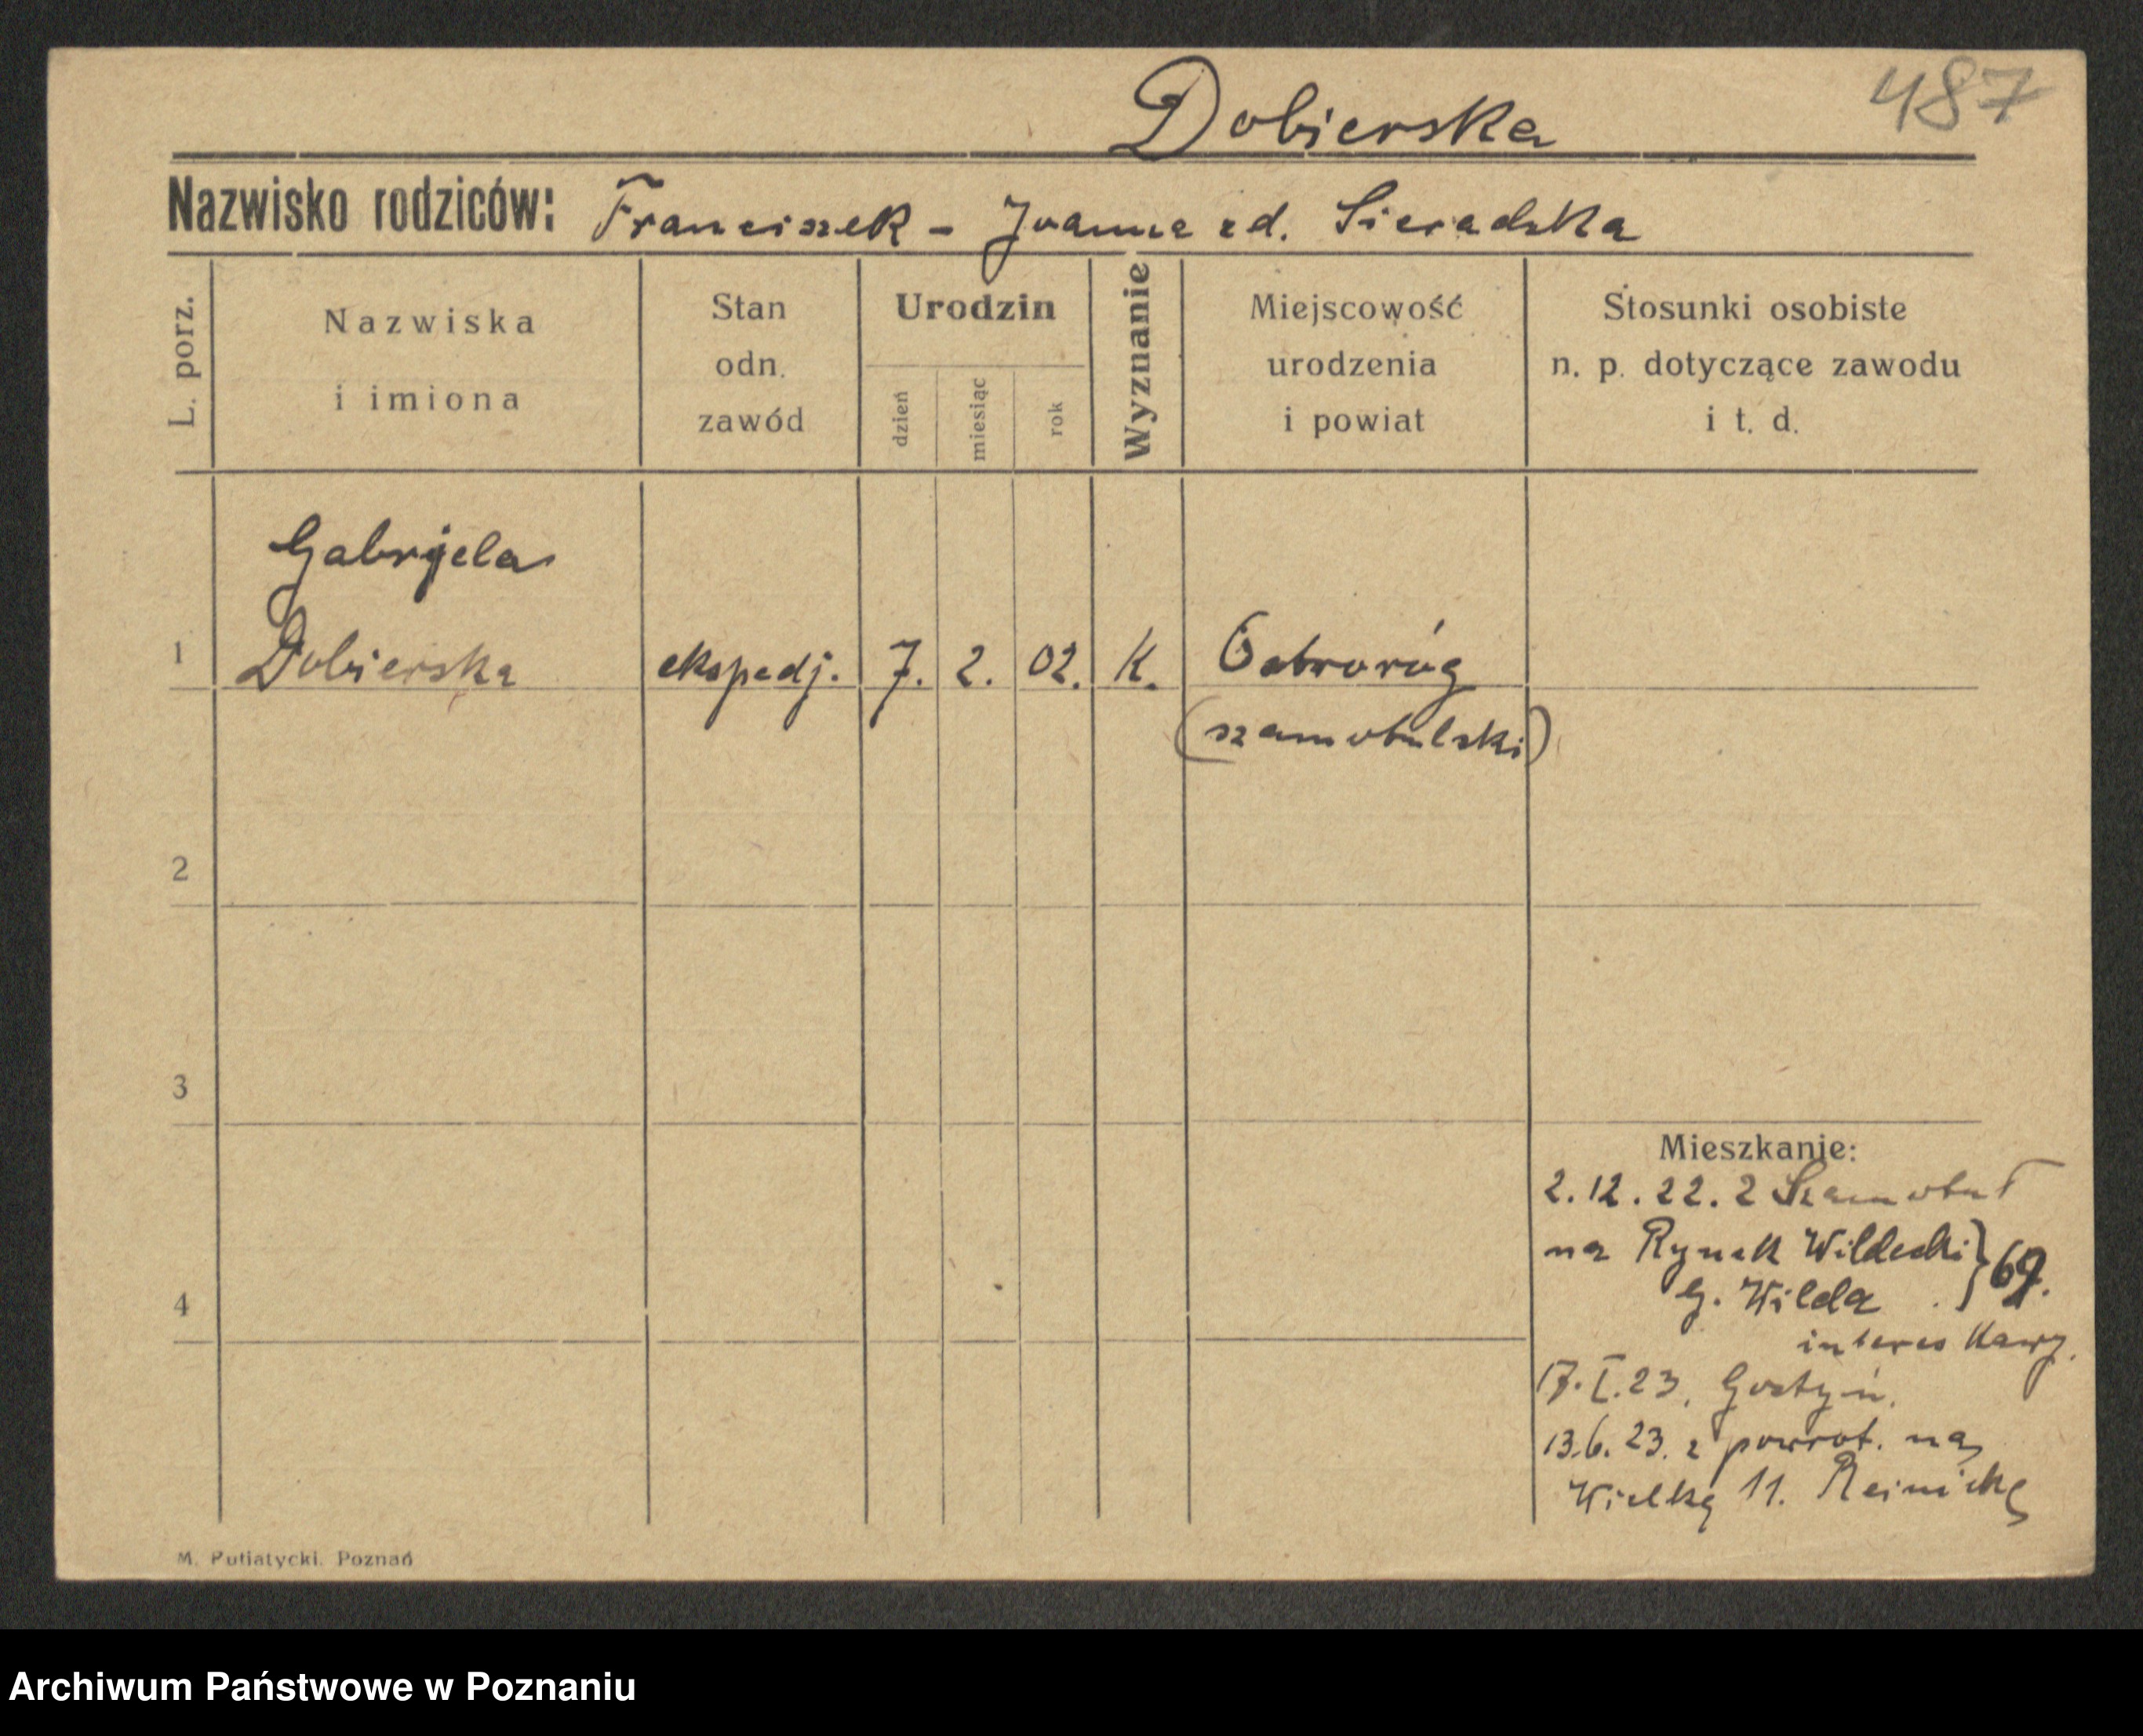 487
Dobierska
Nazwisko rodziców: Franciszek - Joanna zd. Sieradzka
L. porz.
Nazwiska
i imiona
Stan
odn.
zawód
Urodzin
dzień
miesiąc
rok
Wyznanie
Miejscowość
urodzenia
i powiat
Stosunki osobiste
n. p. dotyczące zawodu
i t. d.
Gabrjela
1 Dobierska ekspedj. 7. 2. 02. K. Ostroróg
(szamotulski)
2
3
4
Mieszkanie:
2.12.22. z Szamotuł
na Rynek Wildecki } 69.
G. Wilda
interes Kawy.
17.I.23. Gostyń.
13.6.23. z powrot. na
Wielką 11.
M. Putiatycki. Poznań
Archiwum Państwowe w Poznaniu